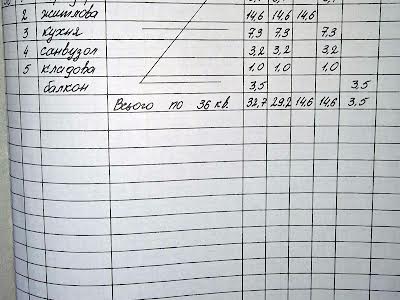 2 житлова 14,6 14,6 14,6
3 кухня 7,3 7,3 7,3
4 санвузол 3,2 3,2 3,2
5 кладова 1,0 1,0 1,0
балкон 3,5 3,5
Всього по 36 кв. 32,7 29,2 14,6 14,6 3,5